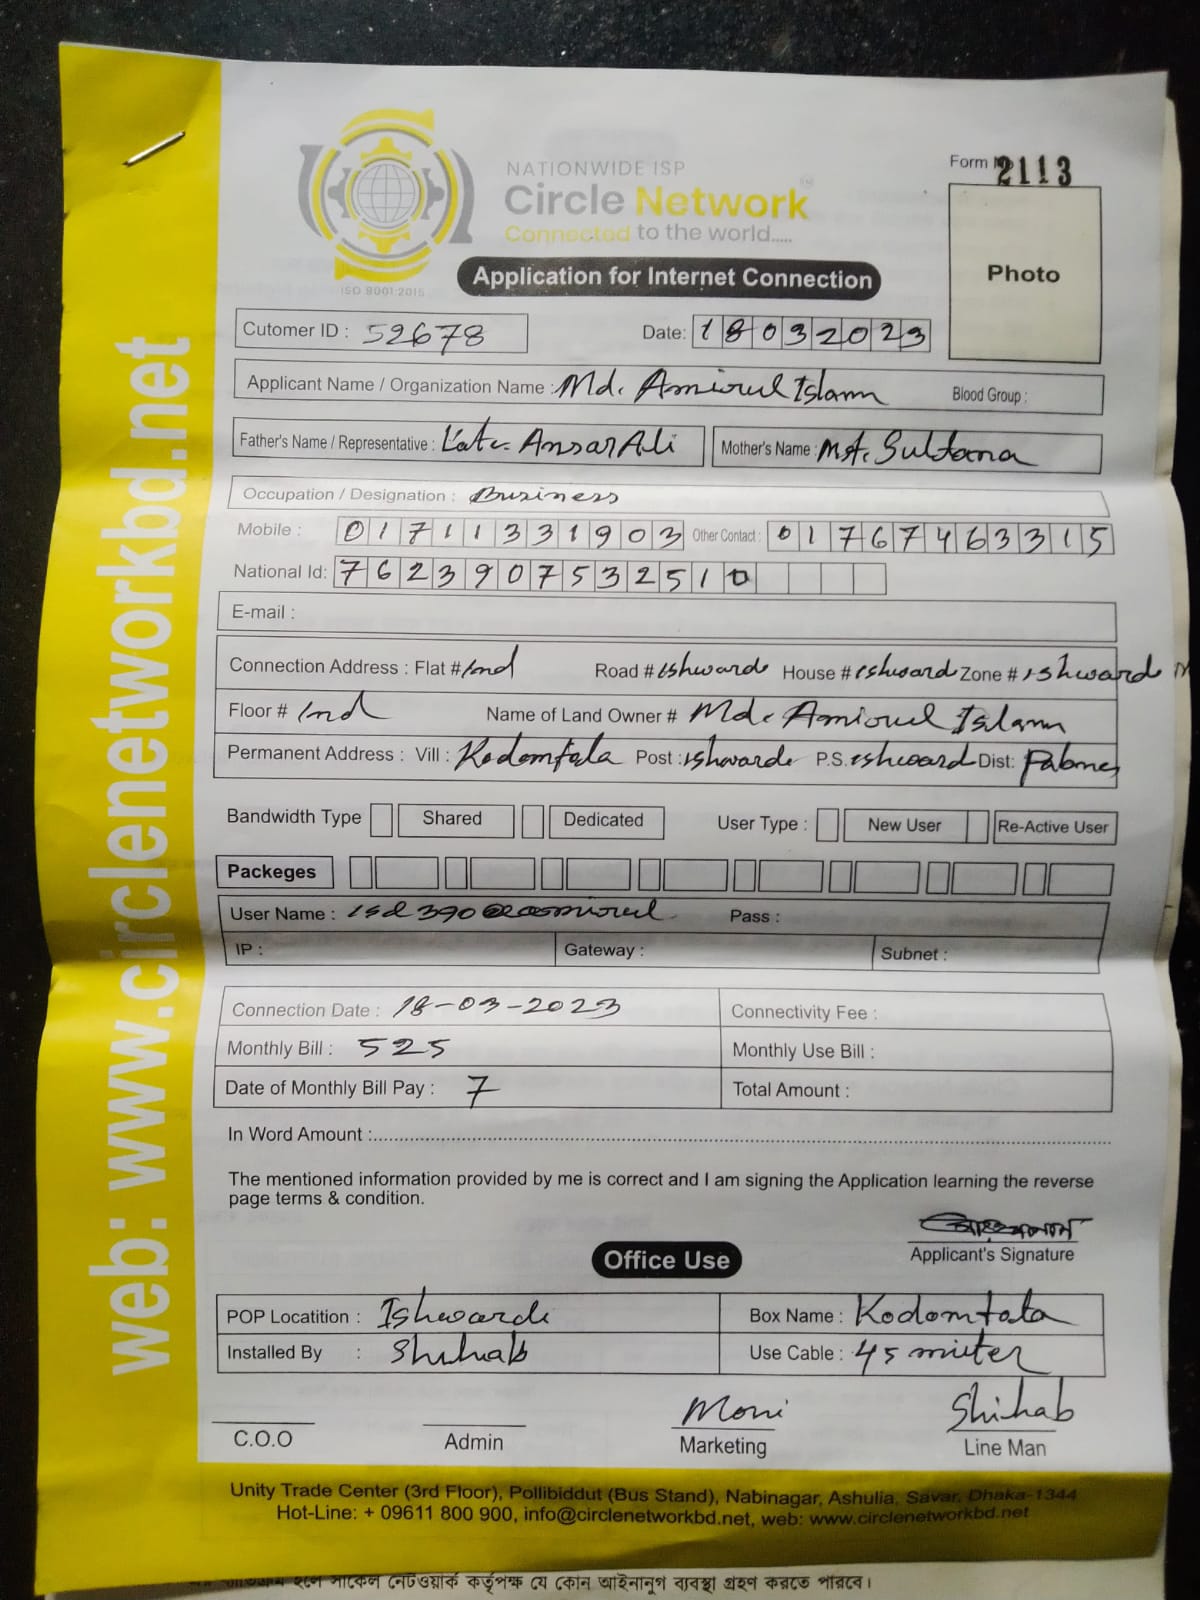 Form No 2113
NATIONWIDE ISP
Circle Network
Connected to the world.....
ISO 9001:2015
Application for Internet Connection
Photo
Cutomer ID : 52678 Date: 18032023
Applicant Name / Organization Name : Md. Amiorul Islam Blood Group :
Father's Name / Representative : Late. Ansar Ali Mother's Name : Mst. Sultana
Occupation / Designation : Business
Mobile : 01711331903 Other Contact : 01767463315
National Id: 7623907532510
E-mail :
Connection Address : Flat # Ind Road # ishwarde House # ishward Zone # ishward
Floor # Ind Name of Land Owner # Md. Amiorul Islam
Permanent Address : Vill : Kodomtala Post : ishwarde P.S. ishward Dist: Pabna
Bandwidth Type Shared Dedicated User Type : New User Re-Active User
Packeges
User Name : isd390 Pass :
IP : Gateway : Subnet :
Connection Date : 18-03-2023 Connectivity Fee :
Monthly Bill : 525 Monthly Use Bill :
Date of Monthly Bill Pay : 7 Total Amount :
In Word Amount :
The mentioned information provided by me is correct and I am signing the Application learning the reverse
page terms & condition.
Applicant's Signature
Office Use
POP Locatition : Ishwarde Box Name : Kodomtala
Installed By : Shihab Use Cable : 45 miter
Moni Shihab
C.O.O Admin Marketing Line Man
Unity Trade Center (3rd Floor), Pollibiddut (Bus Stand), Nabinagar, Ashulia, Savar, Dhaka-1344
Hot-Line: + 09611 800 900, info@circlenetworkbd.net, web: www.circlenetworkbd.net
হলে সার্কেল নেটওয়ার্ক কর্তৃপক্ষ যে কোন আইনানুগ ব্যবস্থা গ্রহণ করতে পারবে।
web: www.circlenetworkbd.net